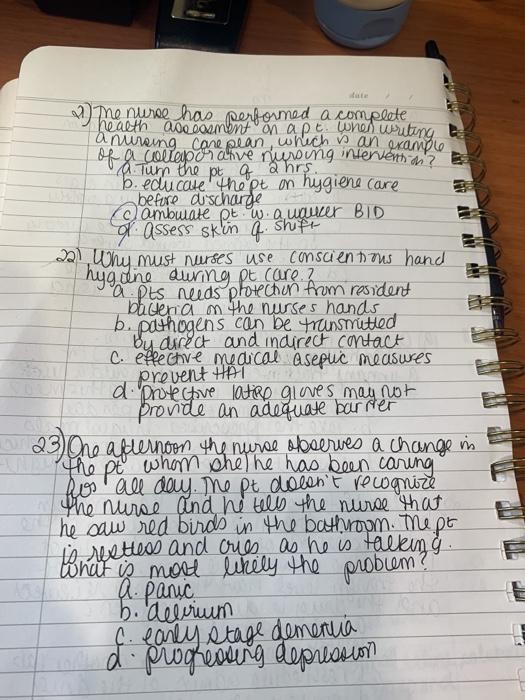 date / /
21) The nurse has performed a complete
health assessment on a pt. When writing
a nursing care plan, which is an example
of a collaborative nursing intervention?
a. Turn the pt q 2 hrs.
b. educate the pt on hygiene care
before discharge
c. ambulate pt. w. a walker BID
d. assess skin q. shift
22) Why must nurses use conscientious hand
hygiene during pt care?
a. pts needs protection from resident
bacteria on the nurses hands
b. pathogens can be transmitted
by direct and indirect contact
c. effective medical aseptic measures
prevent HAI
d. protective latex gloves may not
provide an adequate barrier
23) One afternoon the nurse observes a change in
the pt whom she/he has been caring
for all day. The pt doesn't recognize
the nurse and he tells the nurse that
he saw red birds in the bathroom. The pt
is restless and cries as he is talking.
What is most likely the problem?
a. panic
b. delirium
c. early stage dementia
d. progressing depression